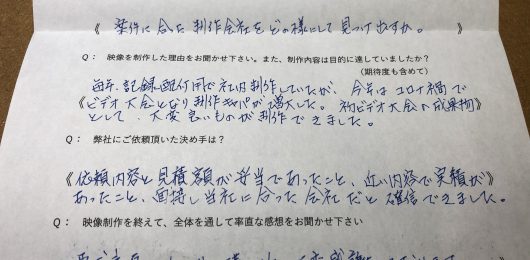 《 案件に合った制作会社をどの様にして見つけ出すか。
Q： 映像を制作した理由をお聞かせ下さい。また、制作内容は目的に達していましたか？
（期待度も含めて）
毎年、記録配付用で社内制作していたが、今年はコロナ禍で
《ビデオ大会となり制作キャパが増大した。初ビデオ大会の成果物
として、大変良いものが制作できました。
Q： 弊社にご依頼頂いた決め手は？
《依頼内容と見積額が妥当であったこと、近い内容で実績が
あったこと、面接し当社に合った会社だと確信できました。
Q： 映像制作を終えて、全体を通して率直な感想をお聞かせ下さい